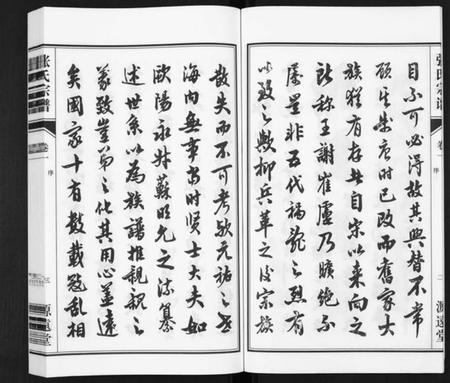 張氏宗譜
卷一 序
二
源遠堂
目不可必得故其興替不常
顧其紫唐時已改而舊家士
族猶有存者自宋以來向之
所稱王謝崔盧乃曠絕不
屬豈非五代禍亂之烈有
以致之歟抑兵革之後宗族
散失而不可考歟元祐之世
海內無事當時賢士大夫如
歐陽永叔蘇明允之流纂
述世系以為族譜推親親之
義致豈弟之化其用心益遠
矣國家十有數載寇亂相
張氏宗譜
卷一 序
三
源遠堂